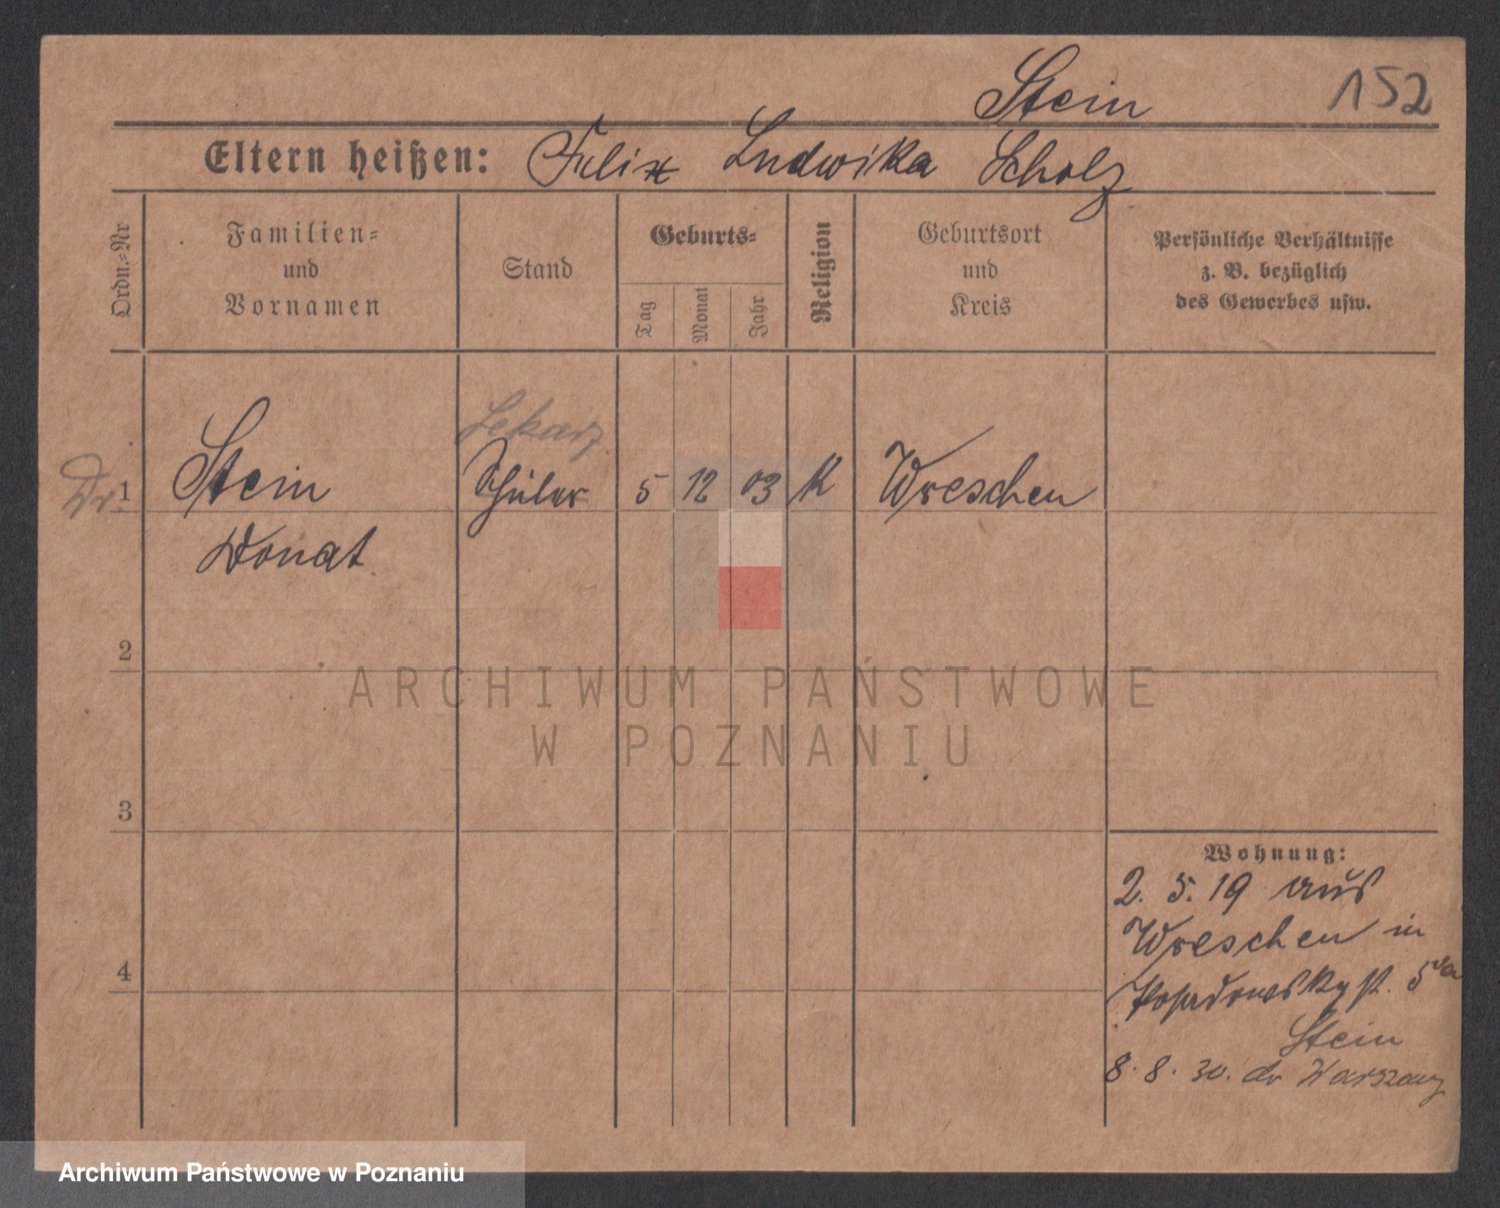 Stein 152
Eltern heißen: Felix Ludwika Scholz
Ordn.-Nr
Familien- und Vornamen
Stand
Geburts-
Tag
Monat
Jahr
Religion
Geburtsort und Kreis
Persönliche Verhältnisse
z. B. bezüglich
des Gewerbes usw.
Lekarz
Dr. 1 Stein Schüler 5 12 03 K Wreschen
Donat
2
ARCHIWUM PAŃSTWOWE
W POZNANIU
3
Wohnung:
2. 5. 19 aus
Wreschen in
4
Posadowsky st. 5
Stein
8. 8. 30. do Warszawy
Archiwum Państwowe w Poznaniu